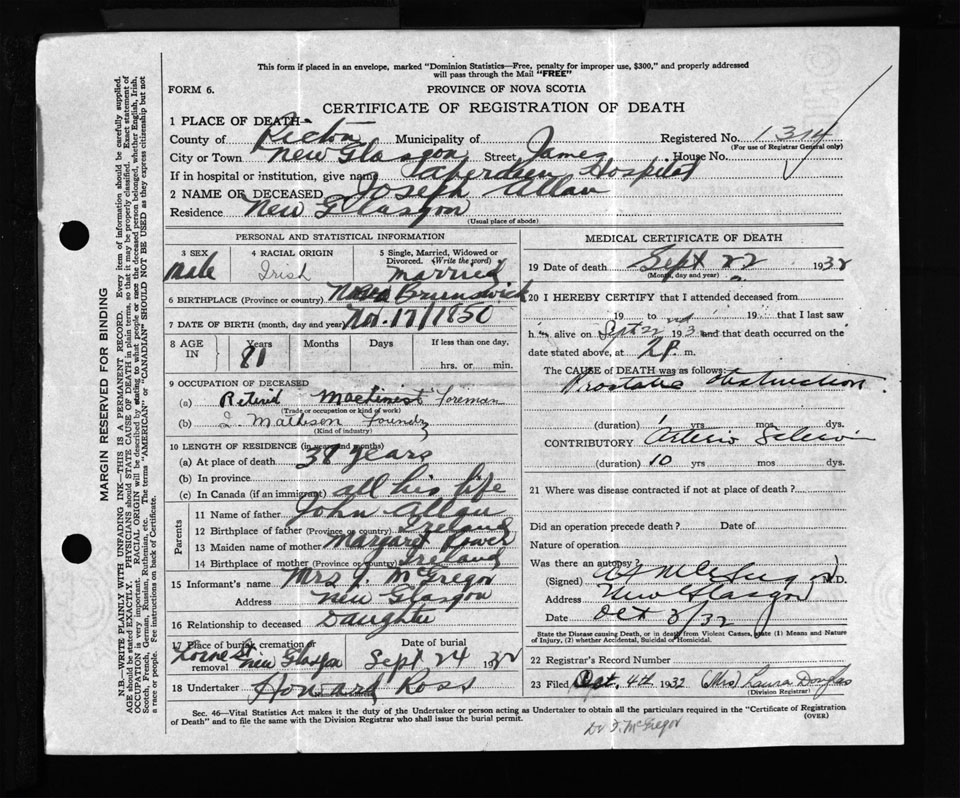 This form if placed in an envelope, marked "Dominion Statistics—Free, penalty for improper use, $300," and properly addressed
will pass through the Mail "FREE"
FORM 6. PROVINCE OF NOVA SCOTIA
CERTIFICATE OF REGISTRATION OF DEATH
1 PLACE OF DEATH—
County of Pictou Municipality of Registered No. 1314
(For use of Registrar General only)
City or Town New Glasgow Street James House No.
If in hospital or institution, give name Aberdeen Hospital
2 NAME OF DECEASED Joseph Allan
Residence New Glasgow
(Usual place of abode)
PERSONAL AND STATISTICAL INFORMATION
3 SEX Male
4 RACIAL ORIGIN Irish
5 Single, Married, Widowed or Divorced. (Write the word) Married
6 BIRTHPLACE (Province or country) New Brunswick
7 DATE OF BIRTH (month, day and year) Nov. 17/1850
8 AGE IN Years 81 Months Days If less than one day. hrs. or min.
9 OCCUPATION OF DECEASED
(a) Retired Machinest Foreman
(Trade or occupation or kind of work)
(b) I. Matheson Foundry
(Kind of industry)
10 LENGTH OF RESIDENCE (in years and months)
(a) At place of death 38 years
(b) In province
(c) In Canada (if an immigrant) all his life
Parents
11 Name of father John Allan
12 Birthplace of father (Province or country) Ireland
13 Maiden name of mother Margaret
14 Birthplace of mother (Province or country) Ireland
15 Informant's name Mrs J. McGregor
Address New Glasgow
16 Relationship to deceased Daughter
17 Place of burial, cremation or removal New Glasgow Date of burial Sept 24 1932
18 Undertaker Howard Ross
MEDICAL CERTIFICATE OF DEATH
19 Date of death Sept 22 1932
(Month, day and year)
20 I HEREBY CERTIFY that I attended deceased from
19 to 19 that I last saw
h alive on Sept 22 193 and that death occurred on the
date stated above, at 2 P. m.
The CAUSE of DEATH was as follows:
Prostatic obstruction
(duration) 1 yrs mos dys.
CONTRIBUTORY Arterio
(duration) 10 yrs mos dys.
21 Where was disease contracted if not at place of death?
Did an operation precede death? Date of
Nature of operation
Was there an autopsy
(Signed) M.D.
Address New Glasgow
Date Oct 3/32
State the Disease causing Death, or in death from Violent Causes, state (1) Means and Nature
of Injury, (2) whether Accidental, Suicidal or Homicidal.
22 Registrar's Record Number
23 Filed Oct. 4th 1932 (Mrs) Laura Douglas
(Division Registrar)
Sec. 46—Vital Statistics Act makes it the duty of the Undertaker or person acting as Undertaker to obtain all the particulars required in the "Certificate of Registration
of Death" and to file the same with the Division Registrar who shall issue the burial permit. (OVER)
Dr J. McGregor
MARGIN RESERVED FOR BINDING
N.B.—WRITE PLAINLY WITH UNFADING INK—THIS IS A PERMANENT RECORD. Every item of information should be carefully supplied.
AGE should be stated EXACTLY. PHYSICIANS should STATE CAUSE OF DEATH in plain terms, so that it may be properly classified. Exact statement of
OCCUPATION is very important. RACIAL ORIGIN will be described by stating to what people or race the deceased person belonged, whether English, Irish,
Scotch, French, German, Russian, Ruthenian, etc. The terms "AMERICAN" or "CANADIAN" SHOULD NOT BE USED as they express citizenship but not
a race or people. See instructions on back of Certificate.